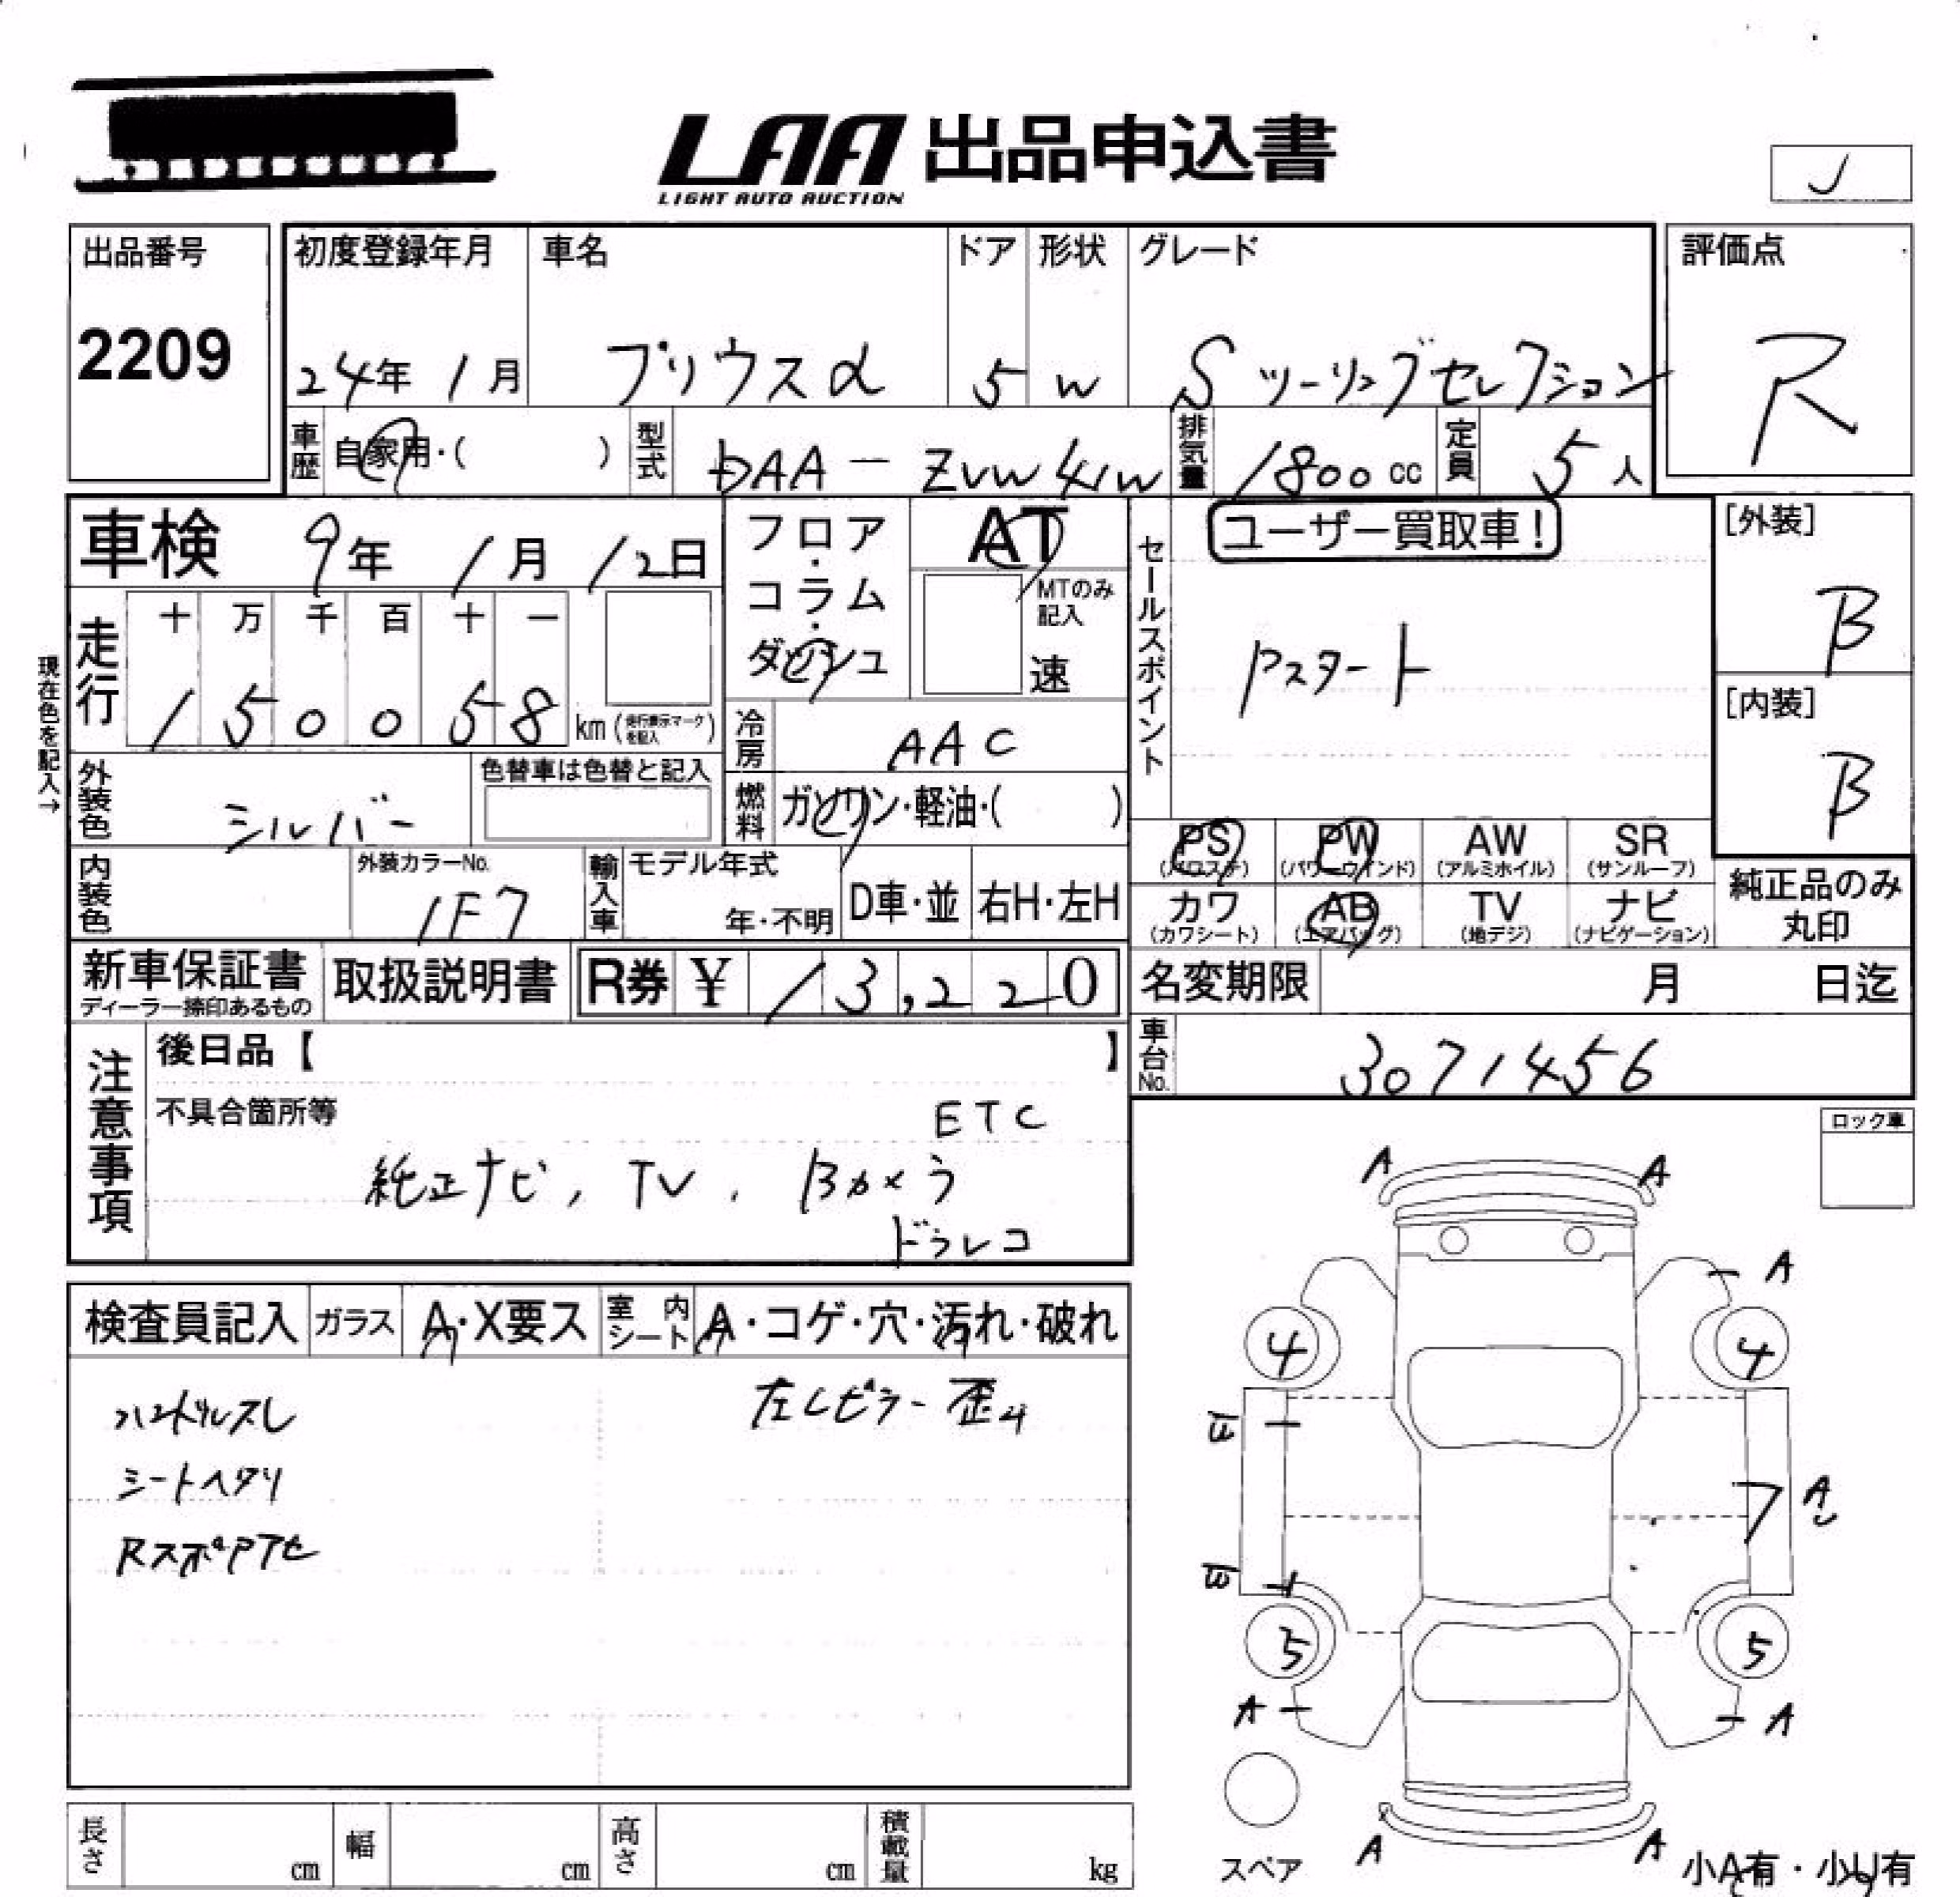 LAA 出品申込書
LIGHT AUTO AUCTION
J
出品番号
2209
初度登録年月
24年 1月
車名
プリウスα
ドア
5
形状
W
グレード
Sツーリングセレクション
評価点
R
車歴
自家用・( )
型式
DAA-ZVW41W
排気量
1800cc
定員
5人
車検 9年 1月 12日
フロア・コラム・ダッシュ
AT
MTのみ記入
速
セールスポイント
ユーザー買取車!
Pスタート
[外装]
B
[内装]
B
現在色を記入→
走行
十 万 千 百 十 一
1 5 0 0 5 8 km (走行表示マークを記入)
冷房
AAC
外装色
シルバー
色替車は色替と記入
燃料
ガソリン・軽油・( )
PS
(パワステ)
PW
(パワーウインド)
AW
(アルミホイル)
SR
(サンルーフ)
内装色
外装カラーNo.
1F7
輸入車
モデル年式
年・不明
D車・並
右H・左H
カワ
(カワシート)
AB
(エアバッグ)
TV
(地デジ)
ナビ
(ナビゲーション)
純正品のみ
丸印
新車保証書
ディーラー捺印あるもの
取扱説明書
R券 ¥ 13,220
名変期限 月 日迄
車台No.
3071456
注意事項
後日品【 】
不具合箇所等
ETC
純正ナビ, TV, Bカメラ
ドラレコ
ロック車
検査員記入
ガラス
A・X要ス
室内シート
A・コゲ・穴・汚れ・破れ
ハンドルスレ
シートヘタリ
左Cピラー歪み
A A
A
4 4
A
5 5
A A
A A
スペア
小A有・小U有
長さ cm
幅 cm
高さ cm
積載量 kg